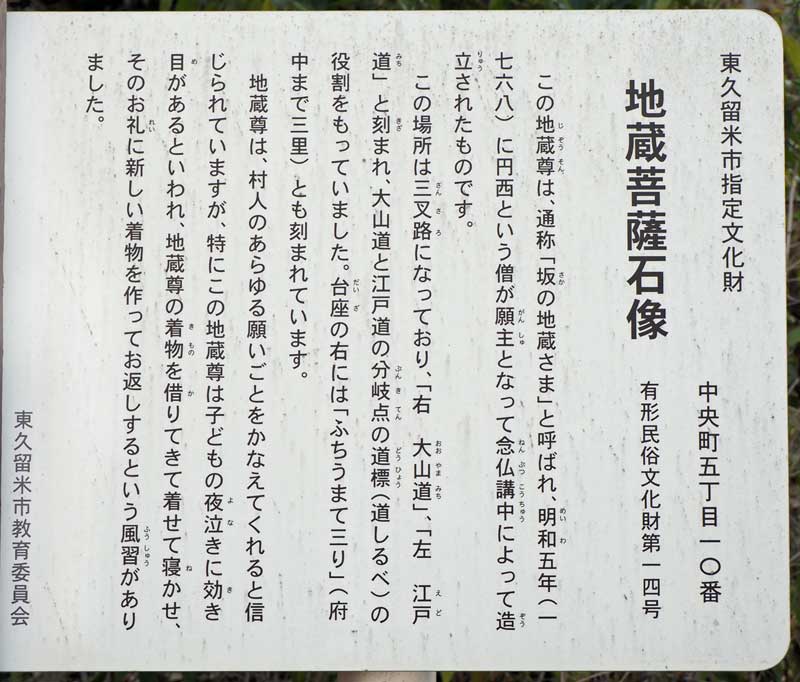 東久留米市指定文化財
中央町五丁目一〇番
地蔵菩薩石像
有形民俗文化財第一四号
この地蔵尊は、通称「坂の地蔵さま」と呼ばれ、明和五年（一
七六八）に円西という僧が願主となって念仏講中によって造
立されたものです。
この場所は三叉路になっており、「右　大山道」、「左　江戸
道」と刻まれ、大山道と江戸道の分岐点の道標（道しるべ）の
役割をもっていました。台座の右には「ふちうまて三り」（府
中まで三里）とも刻まれています。
地蔵尊は、村人のあらゆる願いごとをかなえてくれると信
じられていますが、特にこの地蔵尊は子どもの夜泣きに効き
目があるといわれ、地蔵尊の着物を借りてきて着せて寝かせ、
そのお礼に新しい着物を作ってお返しするという風習があり
ました。
東久留米市教育委員会